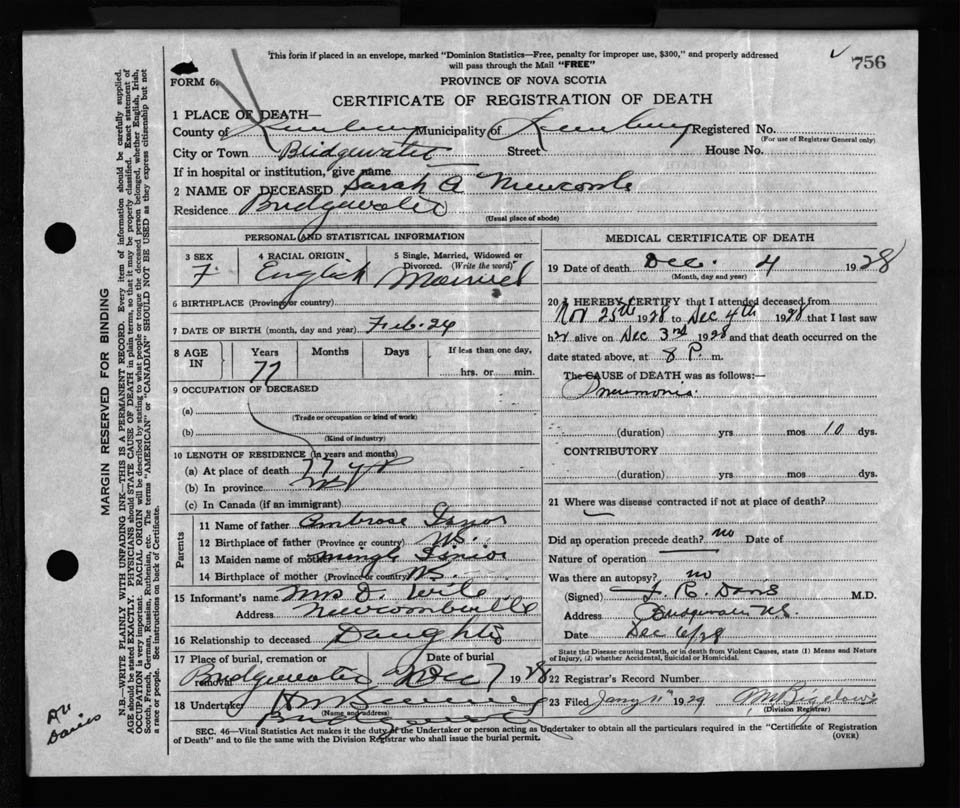 This form if placed in an envelope, marked "Dominion Statistics—Free, penalty for improper use, $300," and properly addressed
will pass through the Mail "FREE"
756
FORM 6.
PROVINCE OF NOVA SCOTIA
CERTIFICATE OF REGISTRATION OF DEATH
1 PLACE OF DEATH—
County of Lunenburg Municipality of Lunenburg Registered No.
(For use of Registrar General only)
City or Town Bridgewater Street House No.
If in hospital or institution, give name
2 NAME OF DECEASED Sarah A Newcombe
Residence Bridgewater
(Usual place of abode)
PERSONAL AND STATISTICAL INFORMATION
3 SEX 4 RACIAL ORIGIN 5 Single, Married, Widowed or
Divorced. (Write the word)
F. English Married
6 BIRTHPLACE (Province or country)
7 DATE OF BIRTH (month, day and year) Feb. 24
8 AGE IN Years Months Days If less than one day,
77 hrs. or min.
9 OCCUPATION OF DECEASED
(a)
(Trade or occupation or kind of work)
(b)
(Kind of industry)
10 LENGTH OF RESIDENCE (In years and months)
(a) At place of death 77 yrs
(b) In province
(c) In Canada (if an immigrant)
Parents
11 Name of father Ambrose
12 Birthplace of father (Province or country) N.S.
13 Maiden name of mother
14 Birthplace of mother (Province or country) N.S.
15 Informant's name Mrs D. Wile
Address Newcombville
16 Relationship to deceased Daughter
17 Place of burial, cremation or removal Date of burial
Bridgewater Dec 7 1928
18 Undertaker
(Name and address)
Bridgewater
MEDICAL CERTIFICATE OF DEATH
19 Date of death Dec. 4 1928
(Month, day and year)
20 I HEREBY CERTIFY that I attended deceased from
Nov 25th 1928 to Dec 4th 1928 that I last saw
her alive on Dec 3rd 1928 and that death occurred on the
date stated above, at 8 P. m.
The CAUSE of DEATH was as follows:—
Pneumonia.
(duration) yrs mos 10 dys.
CONTRIBUTORY
(duration) yrs mos dys.
21 Where was disease contracted if not at place of death?
Did an operation precede death? no Date of
Nature of operation
Was there an autopsy? no
(Signed) Davis M.D.
Address Bridgewater N.S.
Date Dec 6/28
State the Disease causing Death, or in death from Violent Causes, state (1) Means and Nature
of Injury, (2) whether Accidental, Suicidal or Homicidal.
22 Registrar's Record Number
23 Filed Jany 11th 1929
(Division Registrar)
SEC. 46—Vital Statistics Act makes it the duty of the Undertaker or person acting as Undertaker to obtain all the particulars required in the "Certificate of Registration
of Death" and to file the same with the Division Registrar who shall issue the burial permit.
(OVER)
MARGIN RESERVED FOR BINDING
N.B.—WRITE PLAINLY WITH UNFADING INK—THIS IS A PERMANENT RECORD. Every item of information should be carefully supplied.
AGE should be stated EXACTLY. PHYSICIANS should STATE CAUSE OF DEATH in plain terms, so that it may be properly classified. Exact statement of
OCCUPATION is very important. RACIAL ORIGIN will be described by stating to what people or tongue the deceased person belonged, whether English, Irish,
Scotch, French, German, Russian, Ruthenian, etc. The terms "AMERICAN" or "CANADIAN" SHOULD NOT BE USED as they express citizenship but not
a race or people. See instructions on back of Certificate.